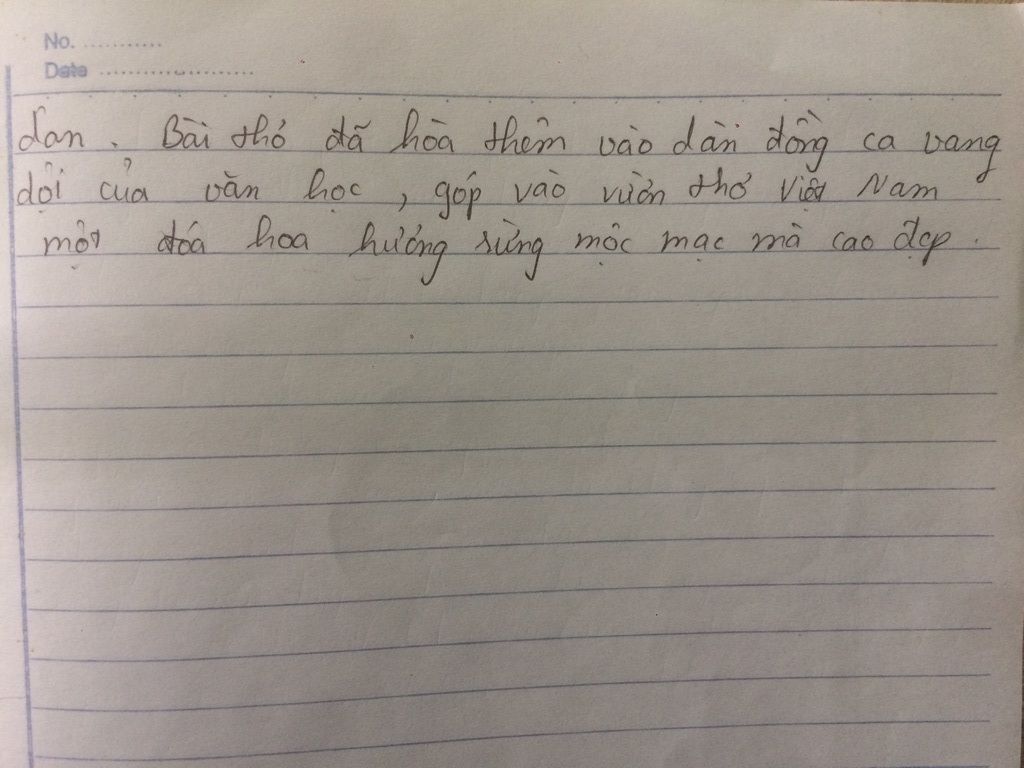 No. ............
Date ........................
dan. Bài thơ đã hòa thêm vào dàn đồng ca vang
dội của văn học, góp vào vườn thơ Việt Nam
một đóa hoa hương rừng mộc mạc mà cao đẹp.